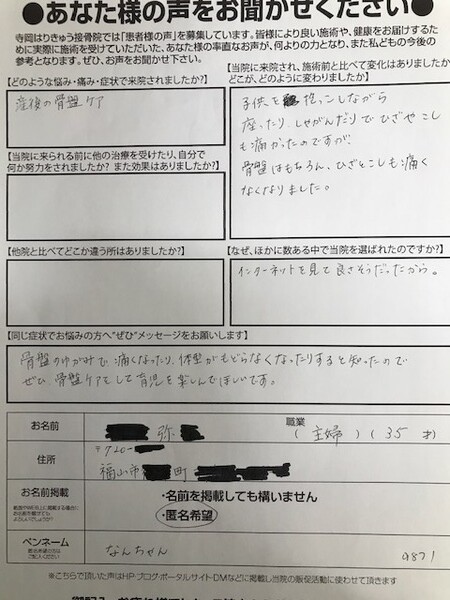 ●あなた様の声をお聞かせください●
寺岡はりきゅう接骨院では「患者様の声」を募集しています。皆様により良い施術や、健康をお届けするため
に実際に施術を受けていただいた、あなた様の率直なお声が、何よりの力となり、また私ども の今後の
参考となります。ぜひ、お声をお聞かせ下さい。
【どのような悩み・痛み・症状で来院されましたか?】
産後の骨盤ケア
【当院に来院され、施術前と比べて変化はありましたか
どこが、どのように変わりましたか】
子供を抱っこしながら
座ったり、しゃがんだりでひざやこし
も痛かったのですが、
骨盤はもちろん、ひざとこしも痛く
なくなりました。
【当院に来られる前に他の治療を受けたり、自分で
何か努力をされましたか? また効果はありましたか?】
【他院と比べてどこか違う所はありましたか?】
【なぜ、ほかに数ある中で当院を選ばれたのですか?】
インターネットを見て良さそうだったから。
【同じ症状でお悩みの方へ"ぜひ"メッセージをお願いします】
骨盤のゆがみで痛くなったり、体型がもどらなくなったりすると知ったので
ぜひ骨盤ケアをして育児を楽しんでほしいです。
お名前
弥
職業
(主婦)(35才)
住所
〒720-
福山市 町
お名前掲載
・名前を掲載しても構いません
・匿名希望
ペンネーム
なんちゃん
9871
※こちらで頂いた声はHP・ブログ・ポータルサイト・DMなどに掲載し当院の販促活動に使わせて頂きます